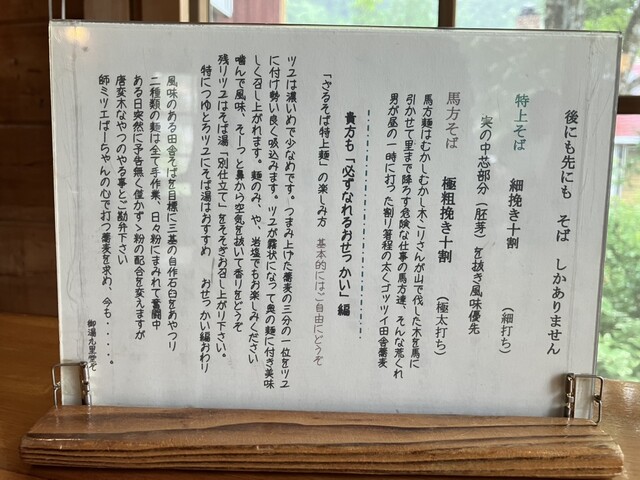 後にも先にも　そば　しかありません
特上そば　細挽き十割　（細打ち）
実の中芯部分（胚芽）を抜き風味優先
馬方そば　極粗挽き十割　（極太打ち）
馬方麺はむかしむかし木こりさんが山で伐した木を馬に
引かせて里まで降ろす危険な仕事の馬方達、そんな荒くれ
男が昼の一時に打った割り箸程の太くゴッツイ田舎蕎麦
貴方も「必ずなれるおせっかい」編
「ざるそば特上麺」の楽しみ方　基本的にはご自由にどうぞ
ツユは濃いめで少なめです。つまみ上げた蕎麦の三分の一位をツユ
に付け勢い良く吸込みます。ツユが霧状になって奥の麺に付き美味
しく召し上がれます。麺のみ、や、岩塩でもお楽しみください
噛んで風味、そーっと鼻から空気を抜いて香りをどうぞ
残りツユはそば湯「別仕立て」をそそぎお召し上がり下さい。
特につゆとろツユにそば湯はおすすめ　おせっかい編おわり
風味のある田舎そばを目標に三基の自作石臼をあやつり
二種類の麺は全て手作業、日々粉にまみれて奮闘中
ある日突然に予告無く僅かずゝ粉の配合を変えますが
唐変木なやつのやる事とご勘弁下さい
師ミツエばーちゃんの心で打つ蕎麦を求め、今も・・・・。
御湯九里堂ぞ